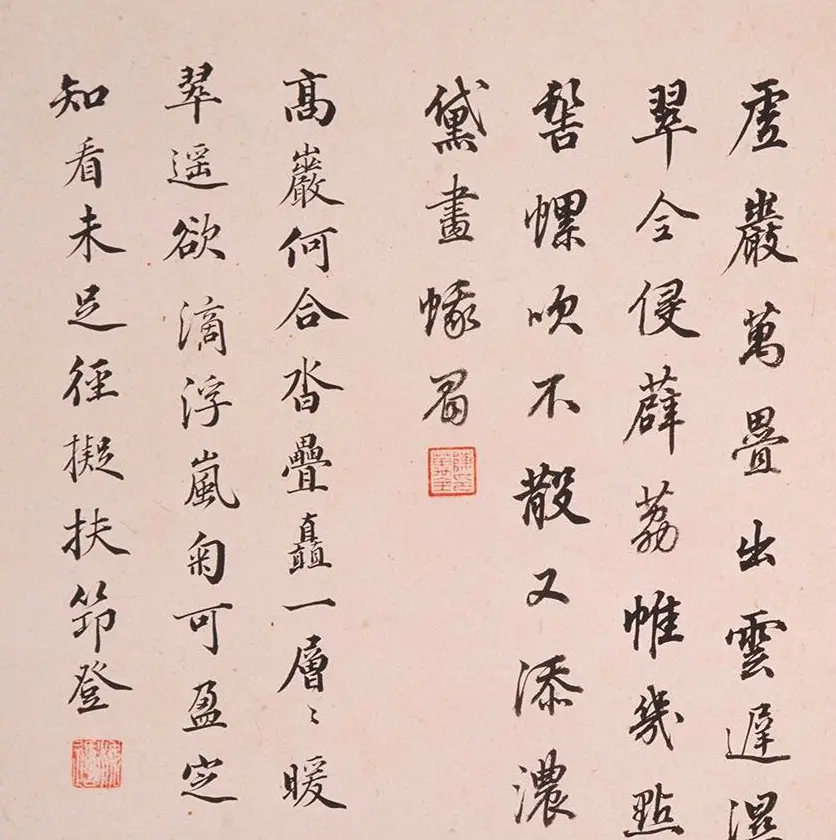 虛巖萬疊出雲遲濕
翠全侵薜荔帷幾點
髻螺吹不散又添濃
黛畫蛾眉
髙巖何合沓疊矗一層〻暖
翠遥欲滴浮嵐匊可盈定
知看未足徑擬扶筇登